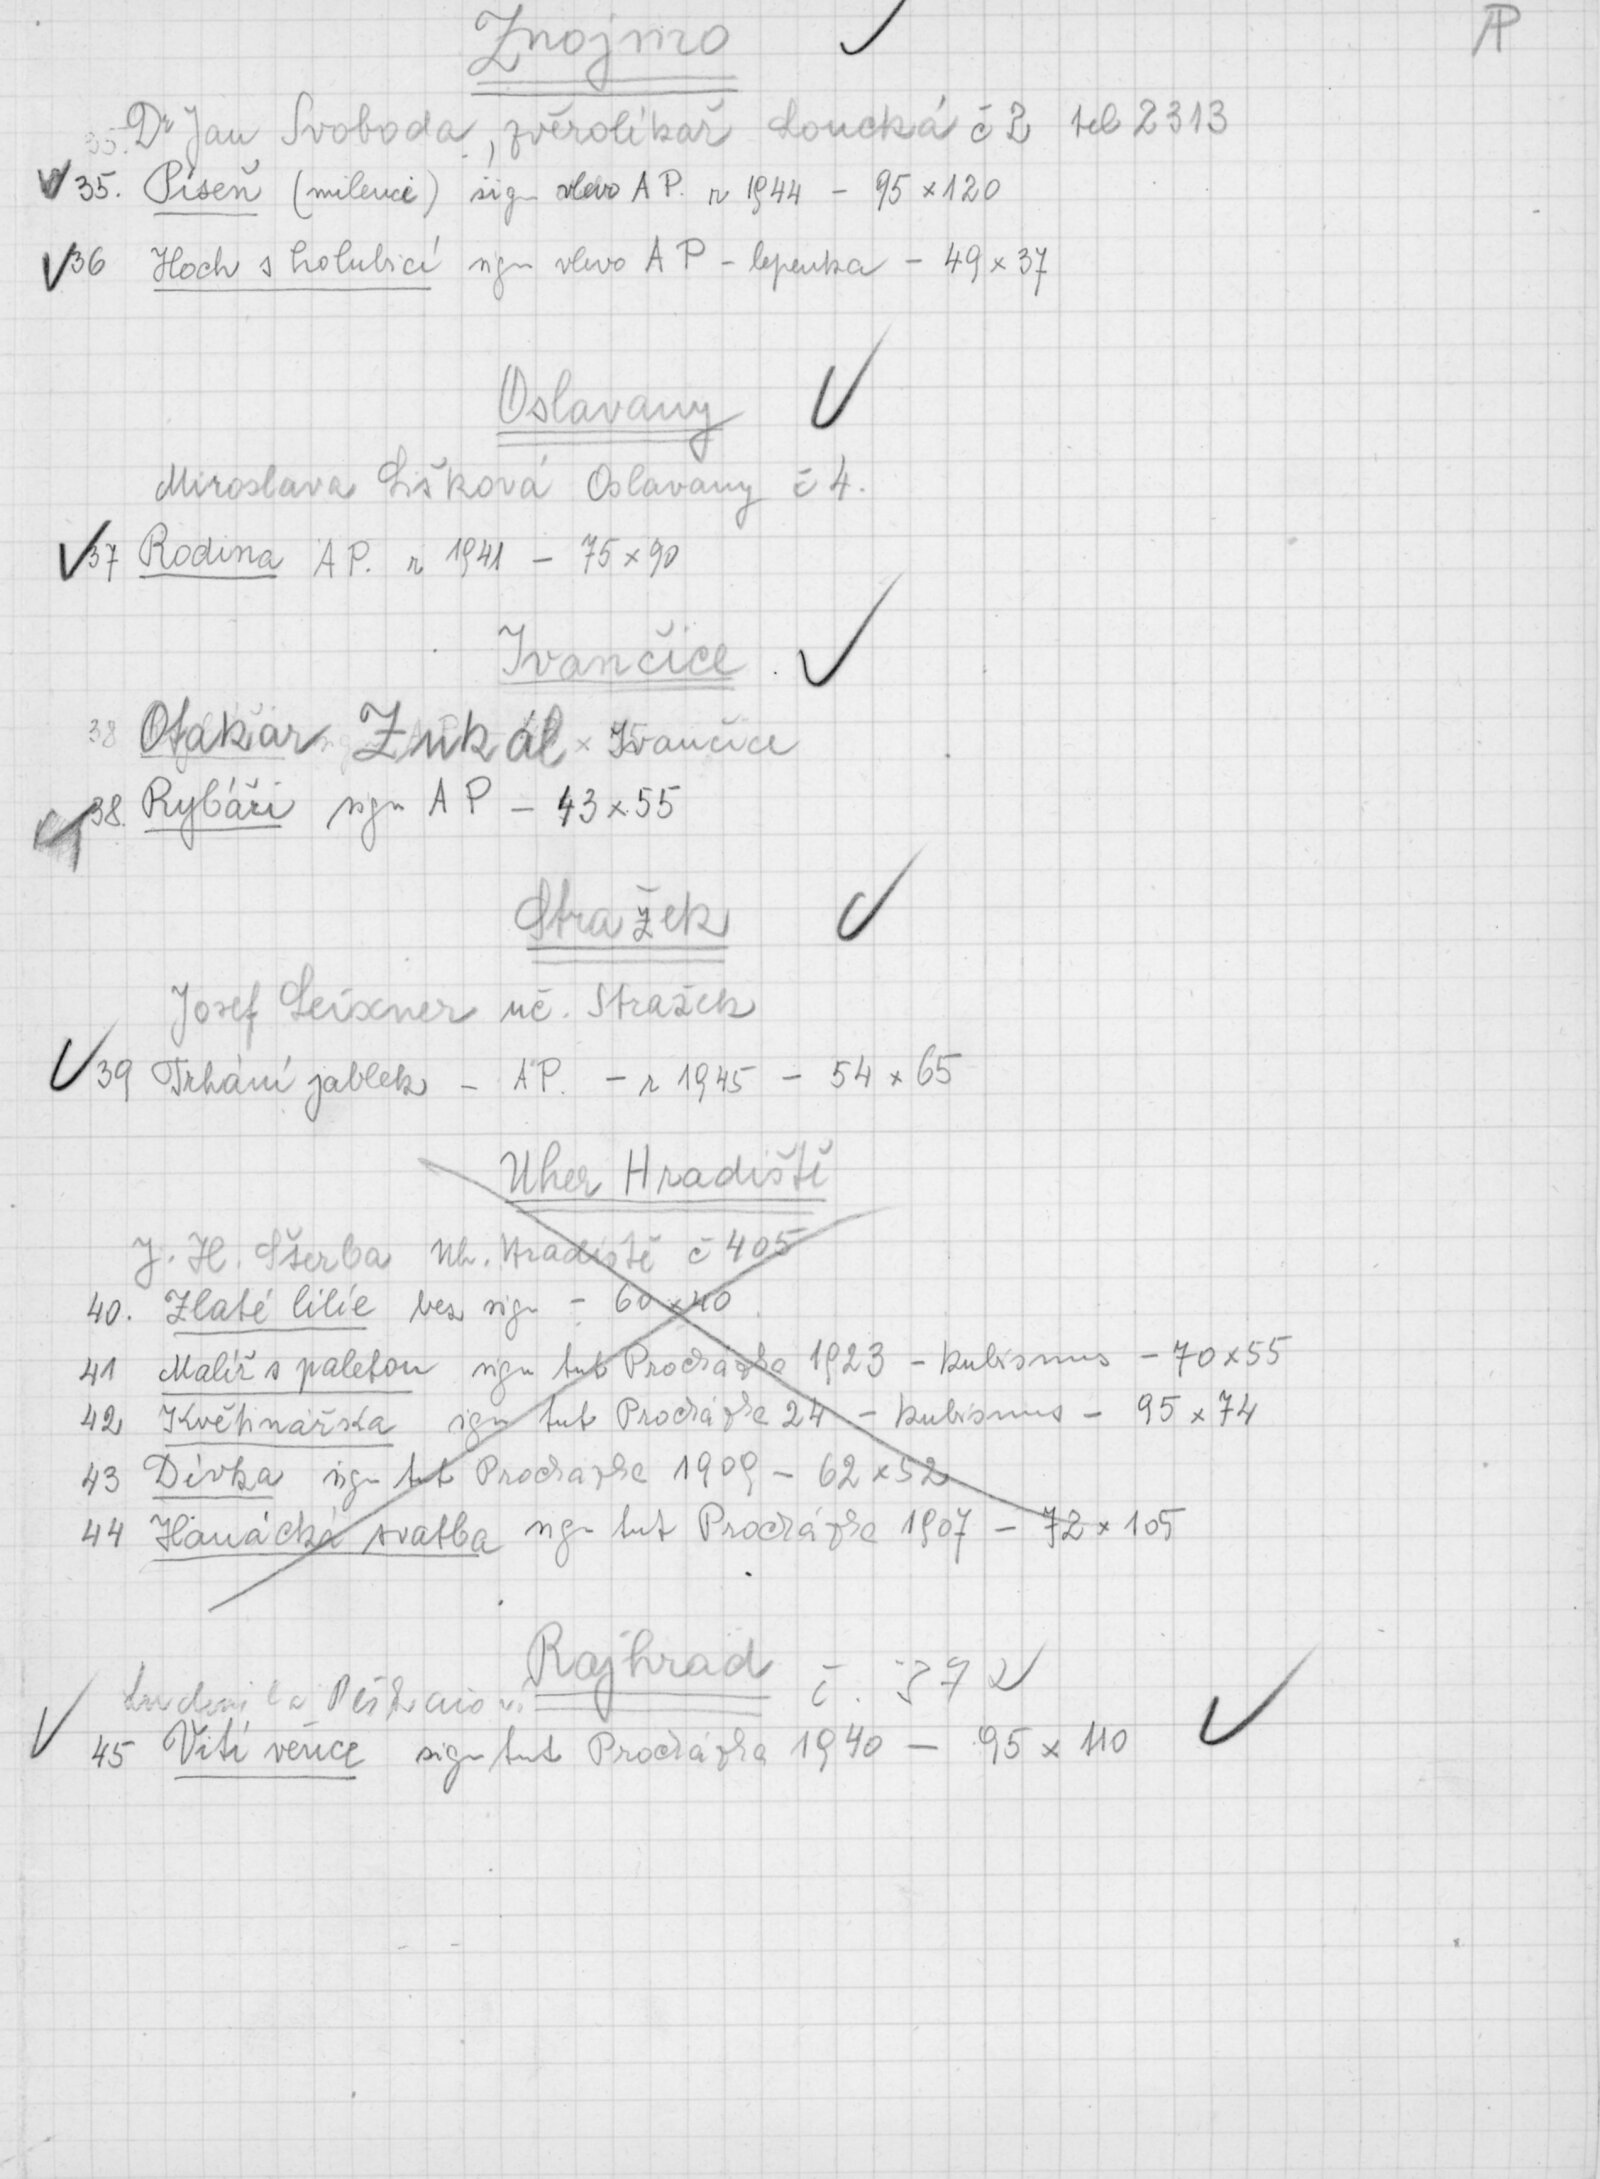 Znojmo ✓ AP
35. Dr Jan Svoboda, zvěrolékař Loucká č 2 tel 2313
✓ 35. Píseň (milenci) sign vlevo A P. r 1944 - 95 × 120
✓ 36 Hoch s holubicí sign vlevo A P - lepenka - 49 × 37
Oslavany ✓
Miroslava Lišková Oslavany č 4.
✓ 37 Rodina A P. r 1941 - 75 × 90
Ivančice. ✓
38 Otakar Zukal × Ivančice
38. Rybáři sign A P - 43 × 55
Stražek ✓
Josef Leixner uč. Stražek
✓ 39 Trhání jablek - A P. - r 1945 - 54 × 65
Uher Hradiště
J. H. Ščerba Uh. Hradiště č 405
40. Zlaté lilie bez sign - 60 × 40
41 Malíř s paletou sign tut Procházka 1923 - kubismus - 70 × 55
42 Květinářka sign tut Procházka 24 - kubismus - 95 × 74
43 Dívka sign tut Procházka 1909 - 62 × 52
44 Hanácká svatba sign tut Procházka 1907 - 72 × 105
Rajhrad č. 372
✓ 45 Vití věnce sign tut Procházka 1940 - 95 × 110 ✓